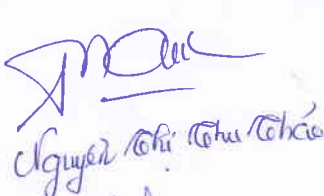 Nguyễn Thị Thu Thảo